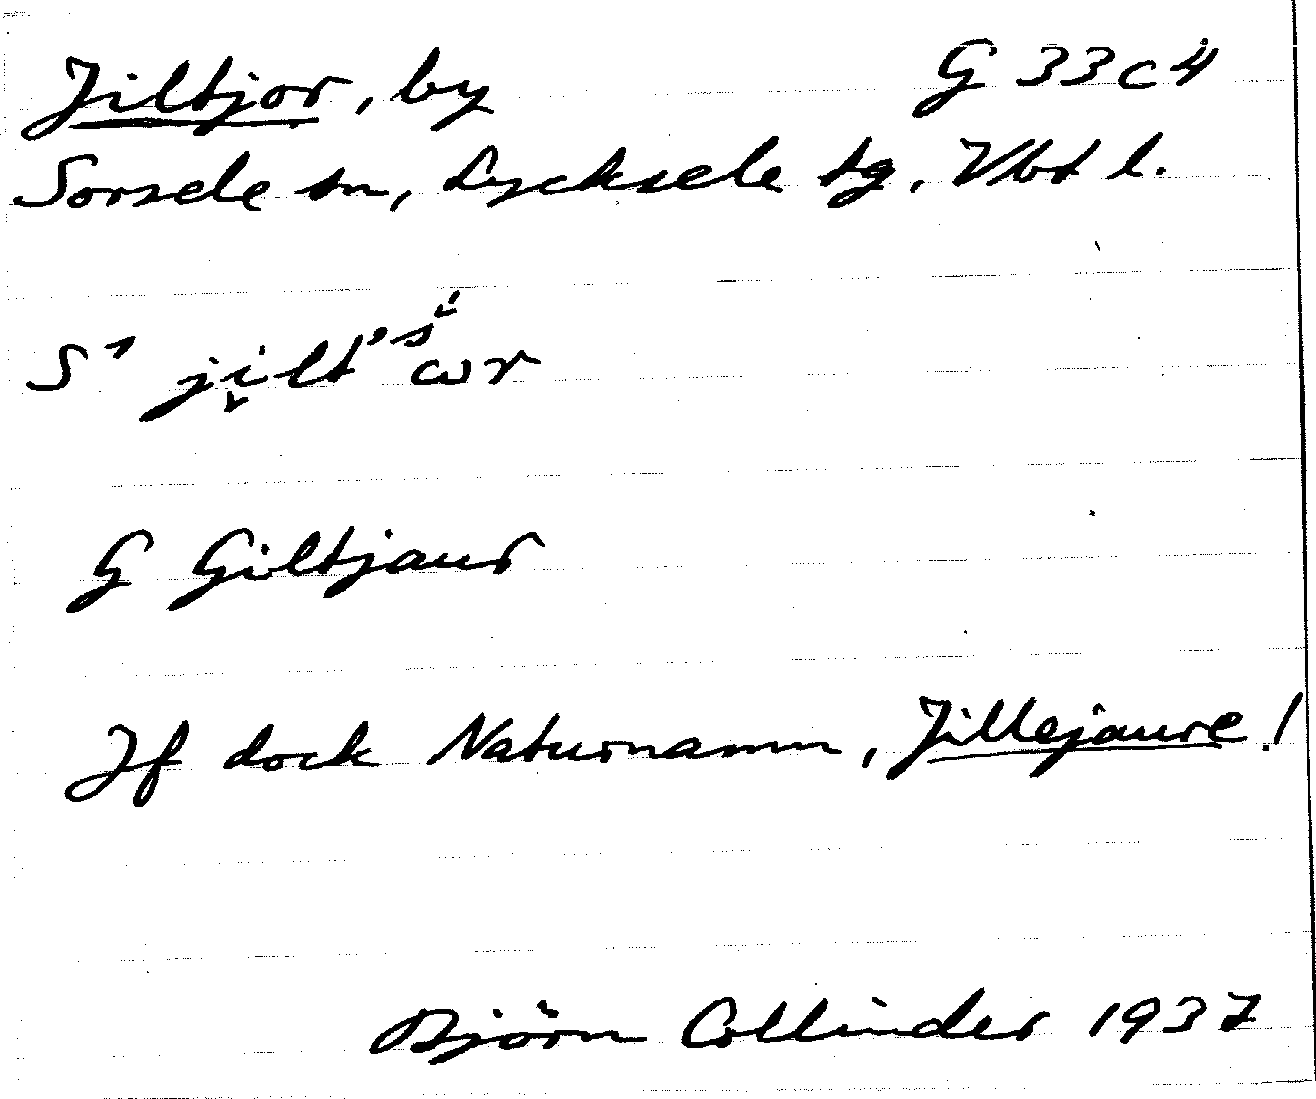 Jiltjor, by G 33 c 4
Sorsele sn, Lycksele tg, Vbt l.
G Giltjaur
Jf dock Naturnamn, Jillejaure!
Björn Collinder 1937